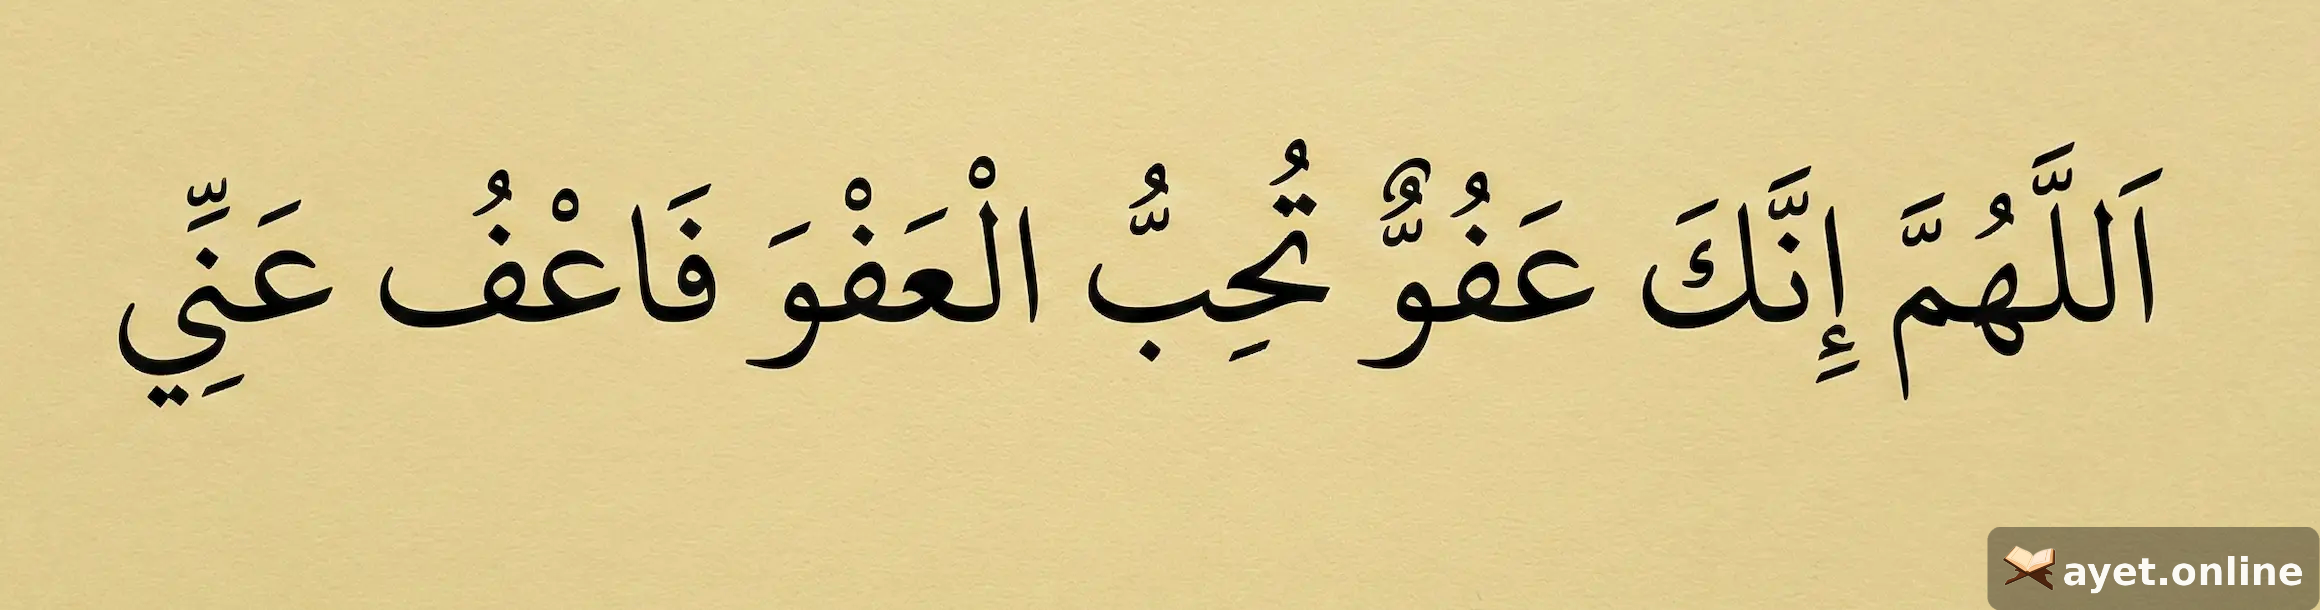 اَللَّهُمَّ إِنَّكَ عَفُوٌّ تُحِبُّ الْعَفْوَ فَاعْفُ عَنِّي
ayet.online